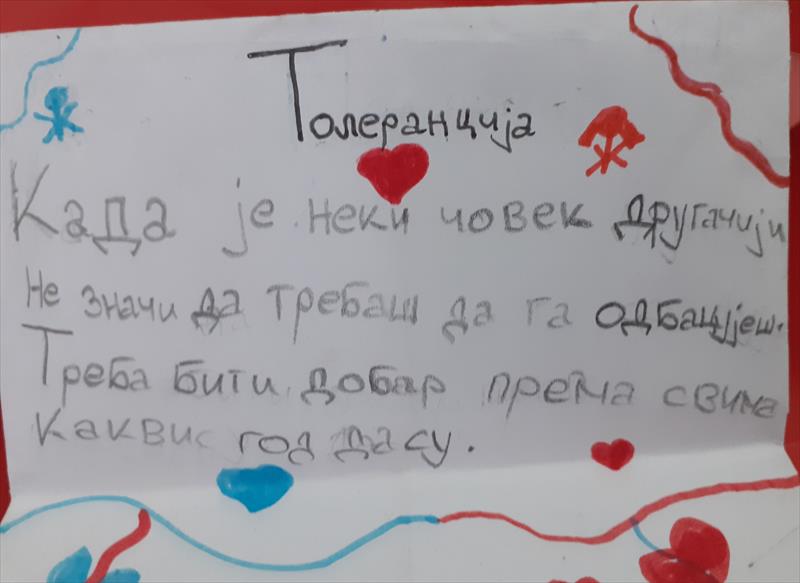 Толеранција
Када је неки човек другачији
Не значи да требаш да га одбацујеш.
Треба бити добар према свима
каквис год дасу.